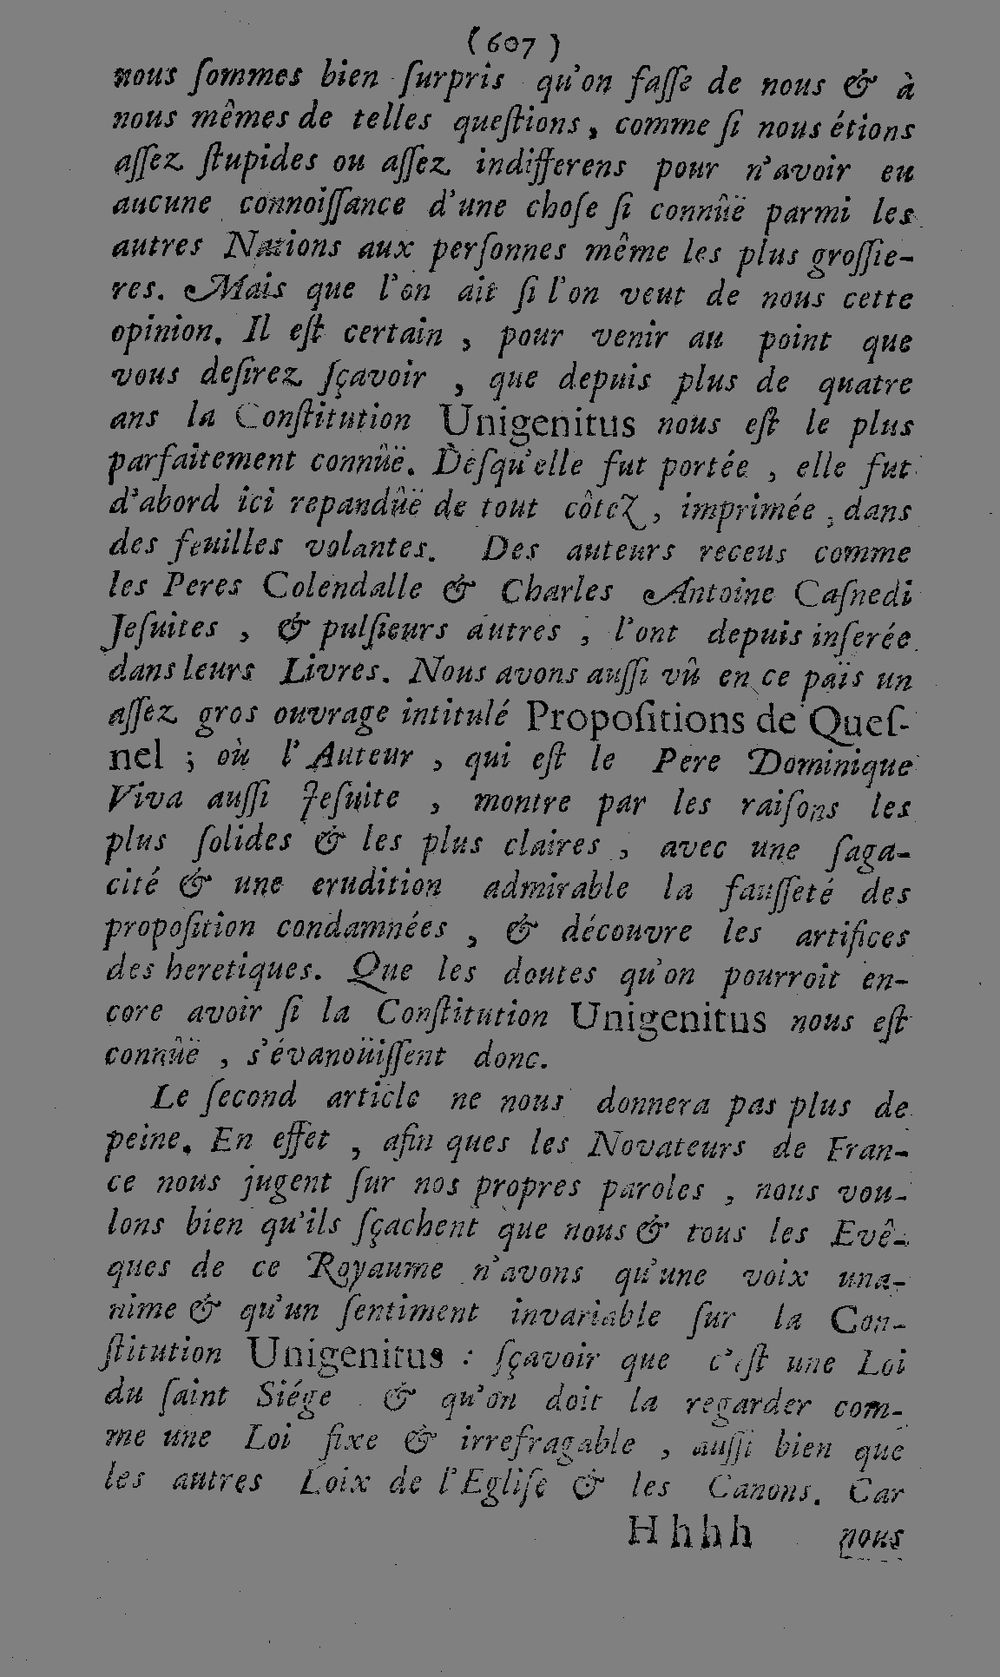 (607)
nous ſommes bien ſurpris qu'on faſſe de nous & à
nous mêmes de telles queſtions, comme ſi nous étions
aſſez ſtupides ou aſſez indifferens pour n'avoir eu
aucune connoiſſance d'une choſe ſi connûë parmi les
autres Nations aux perſonnes même les plus groſſie-
res. Mais que l'on ait ſi l'on veut de nous cette
opinion. Il eſt certain, pour venir au point que
vous deſirez ſçavoir, que depuis plus de quatre
ans la Conſtitution Unigenitus nous eſt le plus
parfaitement connûë. Deſqu'elle fut portée, elle fut
d'abord ici repandûë de tout côtez, imprimée, dans
des feuilles volantes. Des auteurs receus comme
les Peres Colendalle & Charles Antoine Caſnedi
Jeſuites, & pulſieurs autres, l'ont depuis inſerée
dans leurs Livres. Nous avons auſſi vû en ce païs un
aſſez gros ouvrage intitulé Propoſitions de Queſ-
nel; où l'Auteur, qui eſt le Pere Dominique
Viva auſſi Jeſuite, montre par les raiſons les
plus ſolides & les plus claires, avec une ſaga-
cité & une erudition admirable la fauſſeté des
propoſition condamnées, & découvre les artifices
des heretiques. Que les doutes qu'on pourroit en-
core avoir ſi la Conſtitution Unigenitus nous eſt
connûë, s'évanoüiſſent donc.
Le ſecond article ne nous donnera pas plus de
peine. En effet, afin ques les Novateurs de Fran-
ce nous jugent ſur nos propres paroles, nous vou-
lons bien qu'ils ſçachent que nous & tous les Evê-
ques de ce Royaume n'avons qu'une voix una-
nime & qu'un ſentiment invariable ſur la Con-
ſtitution Unigenitus: ſçavoir que c'eſt une Loi
du ſaint Siége & qu'on doit la regarder com-
me une Loi fixe & irrefragable, auſſi bien que
les autres Loix de l'Egliſe & les Canons. Car
Hhhh nous